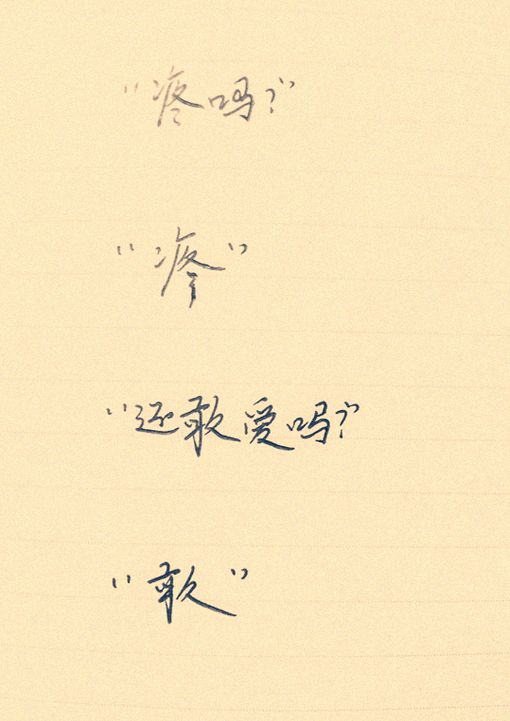 “疼吗？”
“疼”
“还敢爱吗？”
“敢”